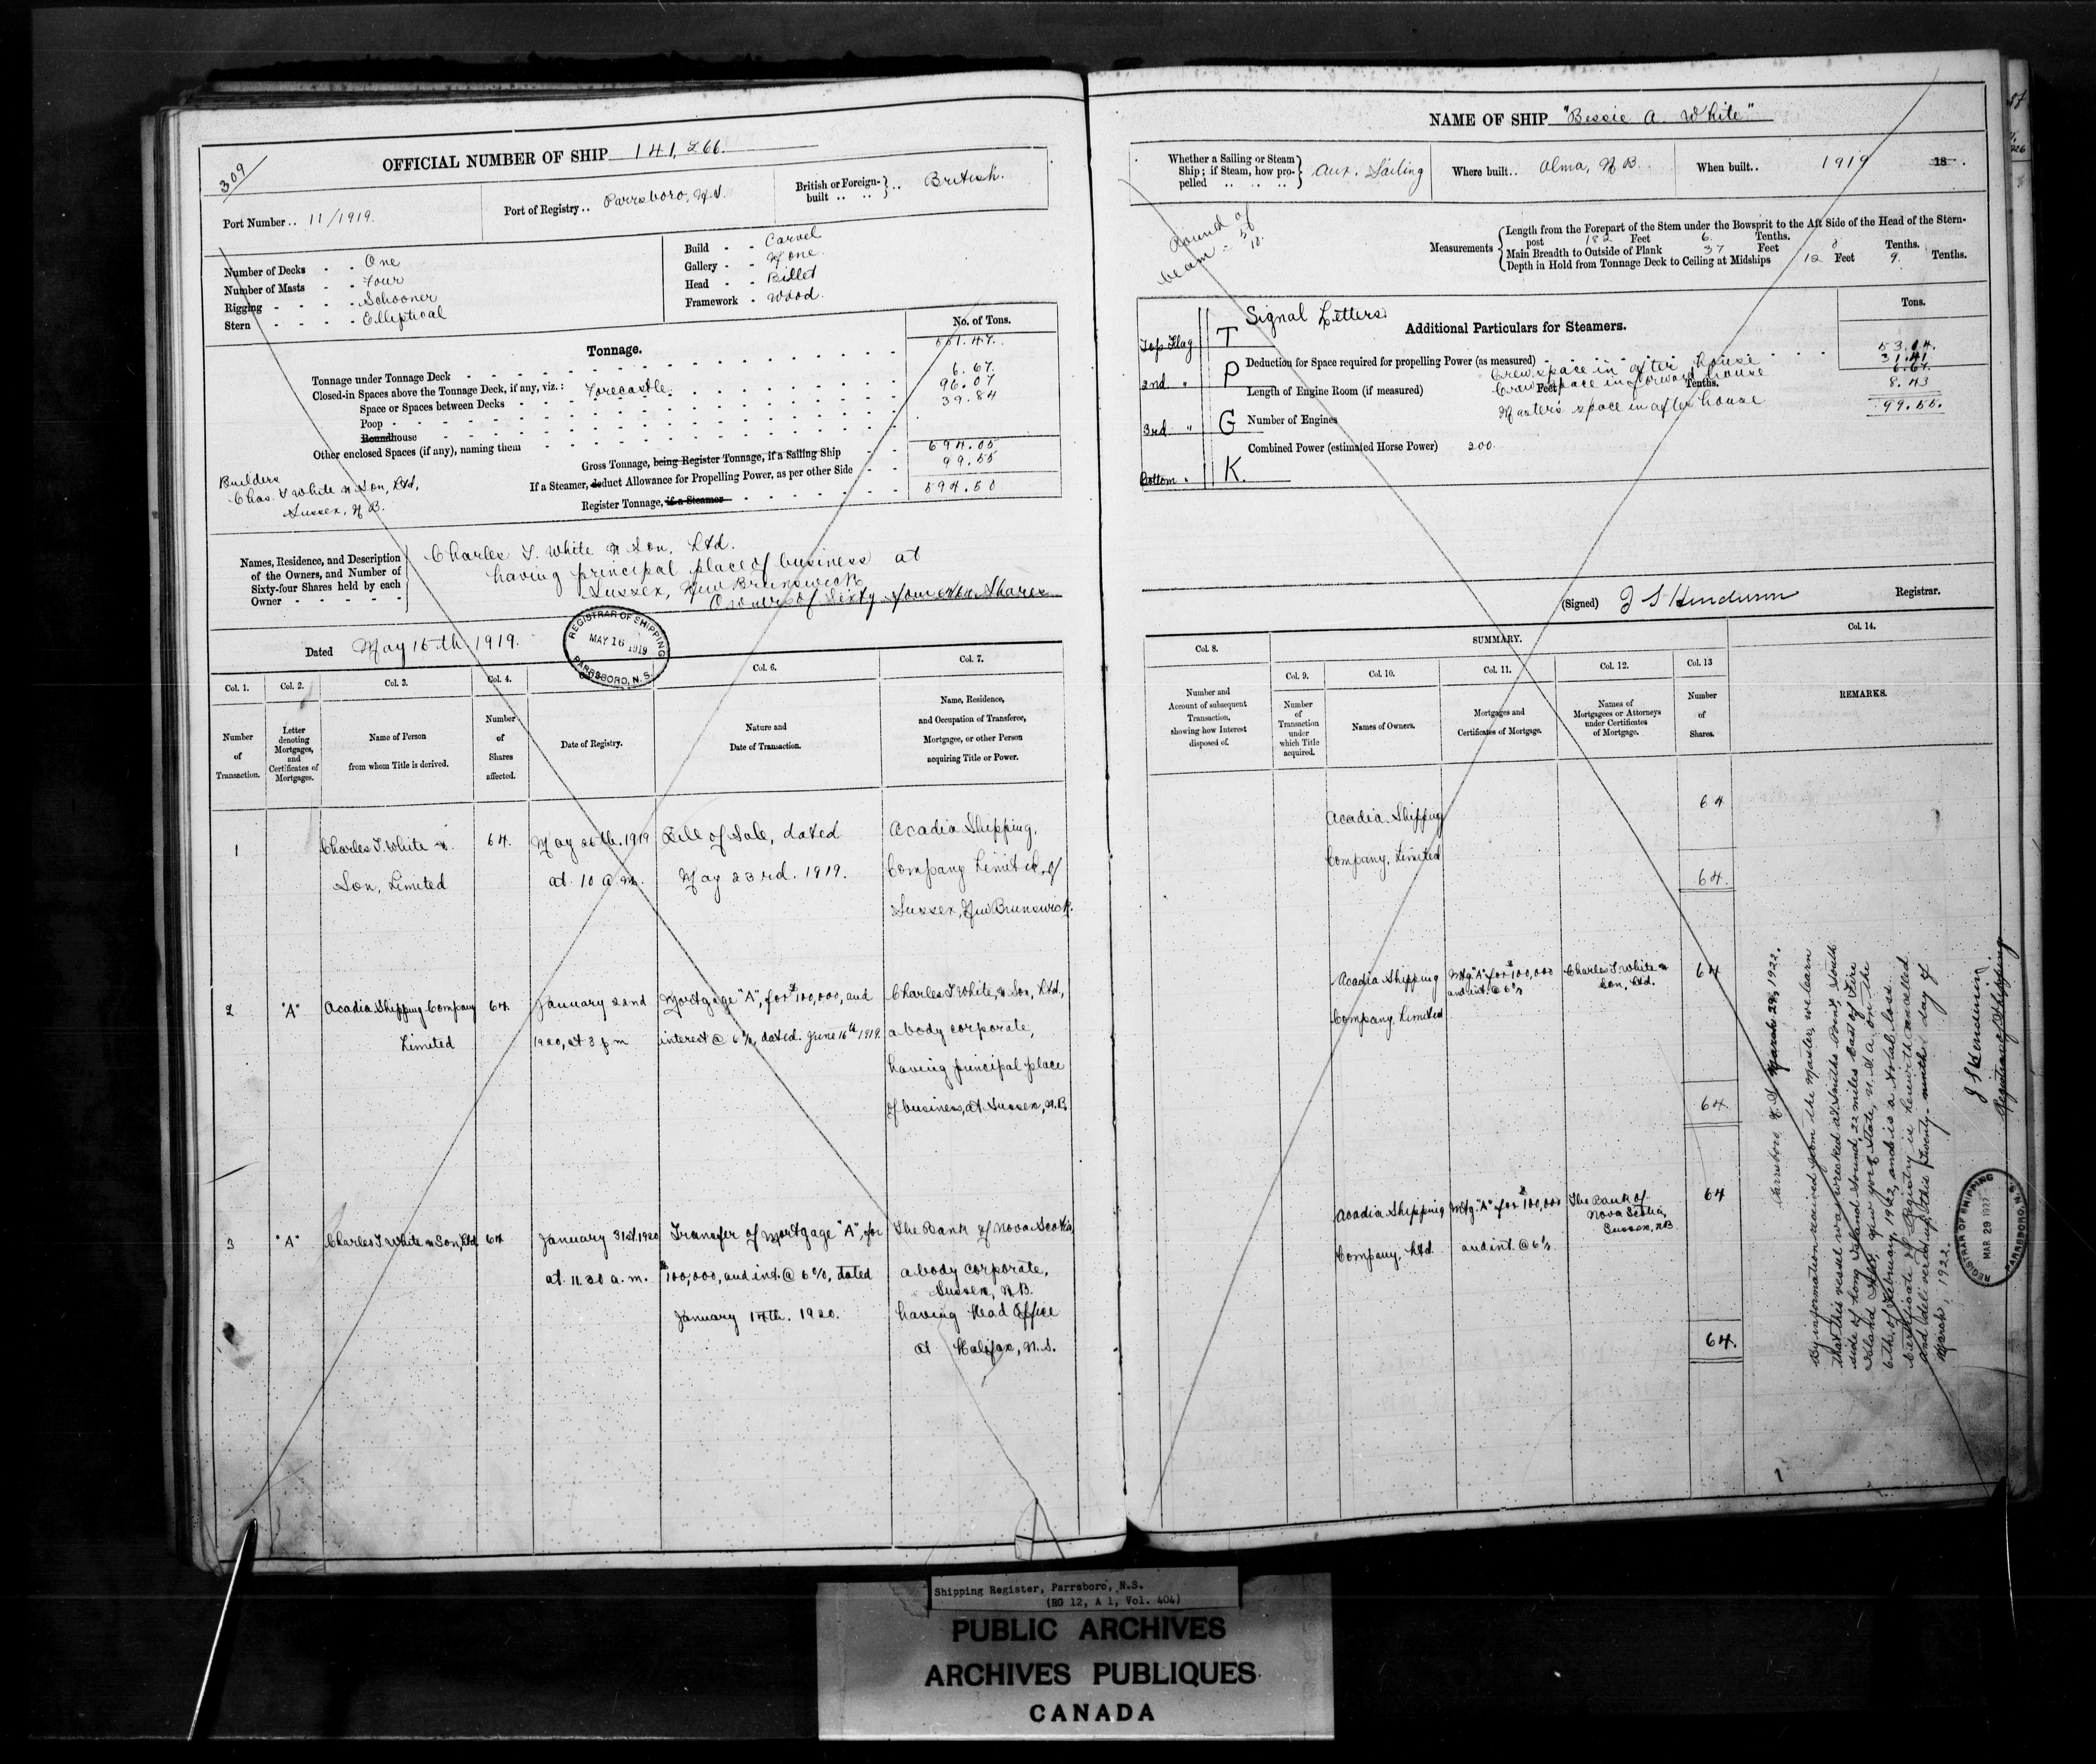 309
OFFICIAL NUMBER OF SHIP 141,266.
Port Number .. 11/1919.
Port of Registry .. Parrsboro, N.S.
British or Foreign-built .. .. } .. British.
Number of Decks - - One
Number of Masts - - Four
Rigging - - - - Schooner
Stern - - - - Elliptical
Build - - Carvel
Gallery - - None
Head - - Billet
Framework - Wood.
Tonnage.
No. of Tons.
Tonnage under Tonnage Deck 551.47.
Closed-in Spaces above the Tonnage Deck, if any, viz.: Forecastle. 6.67.
Space or Spaces between Decks 96.07
Poop 39.84
Roundhouse
Other enclosed Spaces (if any), naming them
Gross Tonnage, being Register Tonnage, if a Sailing Ship 694.05
If a Steamer, deduct Allowance for Propelling Power, as per other Side 99.55
Register Tonnage, if a Steamer 594.50
Builders
Chas. T White & Son, Ltd,
Sussex, N.B.
Names, Residence, and Description
of the Owners, and Number of
Sixty-four Shares held by each
Owner
Charles T. White & Son, Ltd.
having principal place of business at
Sussex, New Brunswick
Owner of Sixty four Shares
Dated May 15th 1919.
REGISTRAR OF SHIPPING
MAY 16 1919
PARRSBORO, N.S.
Col. 1. Col. 2. Col. 3. Col. 4. Col. 6. Col. 7.
Number of Transaction.
Letter denoting Mortgages, and Certificates of Mortgages.
Name of Person from whom Title is derived.
Number of Shares affected.
Date of Registry.
Nature and Date of Transaction.
Name, Residence, and Occupation of Transferee, Mortgagee, or other Person acquiring Title or Power.
1
Charles T. White &
Son, Limited
64.
May 26th. 1919
at 10 a.m.
Bill of Sale, dated
May 23rd. 1919.
Acadia Shipping
Company Limited, of
Sussex, New Brunswick.
2
"A"
Acadia Shipping Company
Limited
64.
January 22nd
1920, at 3 pm
Mortgage "A", for $100,000, and
interest @ 6%, dated June 16th 1919.
Charles T White, & Son, Ltd,
a body corporate,
having principal place
of business, at Sussex, N.B.
3
"A"
Charles T. White & Son, Ltd
64
January 31st. 1920
at 11.30 a.m.
Transfer of Mortgage "A", for
$100,000, and int. @ 6%, dated
January 14th. 1920.
The Bank of Nova Scotia,
a body corporate,
Sussex, N.B.
having Head Office
at Halifax, N.S.
NAME OF SHIP "Bessie A. White"
Whether a Sailing or Steam Ship; if Steam, how propelled } Aux. Sailing
Where built .. Alma, N.B.
When built .. 1919 18 .
Round of
beam - 5/10.
Measurements
Length from the Forepart of the Stem under the Bowsprit to the Aft Side of the Head of the Stern-
post 182 Feet 6. Tenths.
Main Breadth to Outside of Plank 37 Feet 8 Tenths.
Depth in Hold from Tonnage Deck to Ceiling at Midships 12 Feet 9. Tenths.
Signal Letters
Top Flag T
2nd " P
3rd " G
Bottom " K.
Additional Particulars for Steamers.
Tons.
Deduction for Space required for propelling Power (as measured) 53.04.
Crew space in after house 31.41
Length of Engine Room (if measured) Feet Tenths.
Crew space in forward house 6.67
Number of Engines
Master's space in after house 8.43
99.55.
Combined Power (estimated Horse Power) 200.
(Signed) J S Henderson Registrar.
Col. 8. SUMMARY. Col. 14.
Col. 9. Col. 10. Col. 11. Col. 12. Col. 13
Number and Account of subsequent Transaction, showing how Interest disposed of.
Number of Transaction under which Title acquired.
Names of Owners.
Mortgages and Certificates of Mortgage.
Names of Mortgagees or Attorneys under Certificates of Mortgage.
Number of Shares.
REMARKS.
Acadia Shipping
Company, Limited
64
64.
Acadia Shipping
Company, Limited
Mtg. "A" for $100,000
and int. @ 6%
Charles T. White &
Son, Ltd.
64
64.
Acadia Shipping
Company, Ltd.
Mtg. "A" for $100,000
and int. @ 6%.
The Bank of
Nova Scotia,
Sussex, N.B.
64
64.
Parrsboro, N.S. March 29, 1922.
By information received from the Master, we learn
that this vessel was wrecked at Smiths Point, South
side of Long Island Sound, 22 miles East of Fire
Island, New York State, U.S.A. on the
6th. of February, 1922, and is a total loss.
Certificate of Registry is herewith cancelled
and delivered up this twenty-ninth day of
March, 1922.
J S Henderson
Registrar of Shipping
REGISTRAR OF SHIPPING
MAR 29 1922
PARRSBORO, N.S.
Shipping Register, Parrsboro, N.S.
(RG 12, A 1, Vol. 404)
PUBLIC ARCHIVES
ARCHIVES PUBLIQUES
CANADA